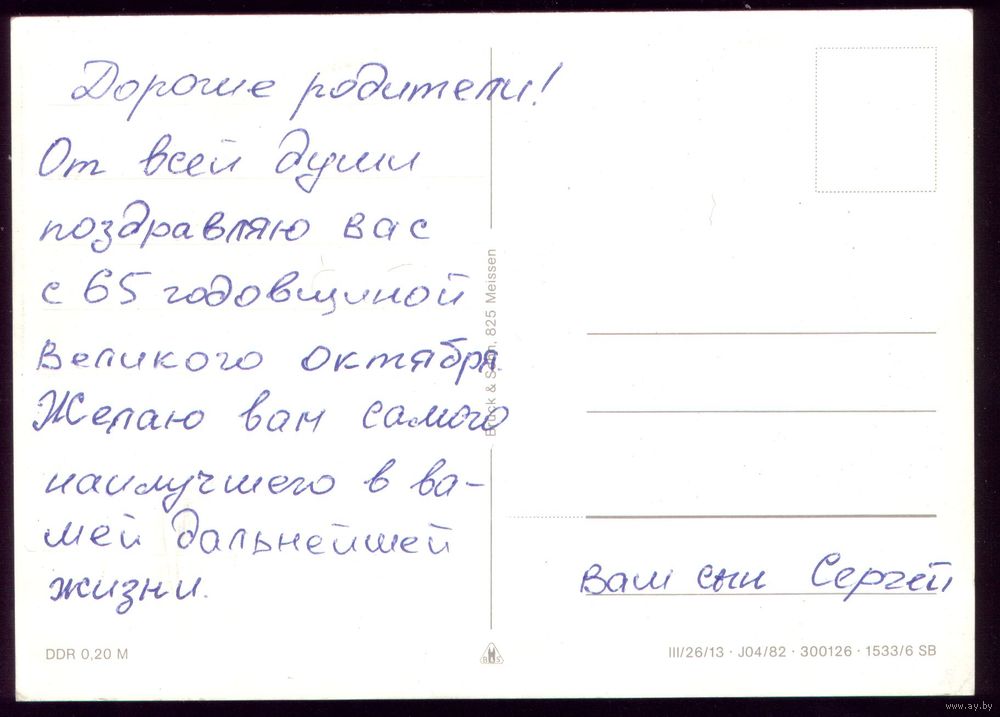 Дорогие родители!
От всей души
поздравляю вас
с 65 годовщиной
Великого октября
Желаю вам самого
наилучшего в ва-
шей дальнейшей
жизни.
Ваш сын Сергей
Brück & Sohn, 825 Meissen
DDR 0,20 M
B H S
III/26/13 · J04/82 · 300126 · 1533/6 SB
www.ay.by